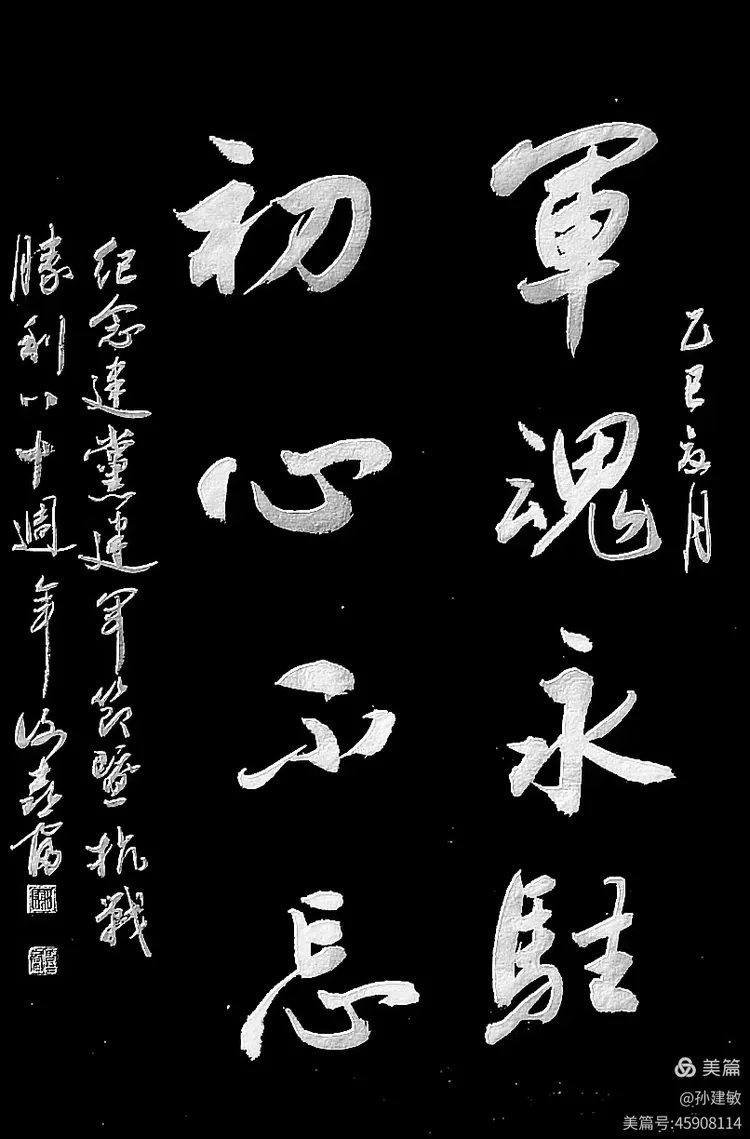 乙巳夏月
軍魂永駐
初心不忘
紀念建黨建軍節暨抗戰
勝利八十週年
美篇
@孙建敏
美篇号:45908114